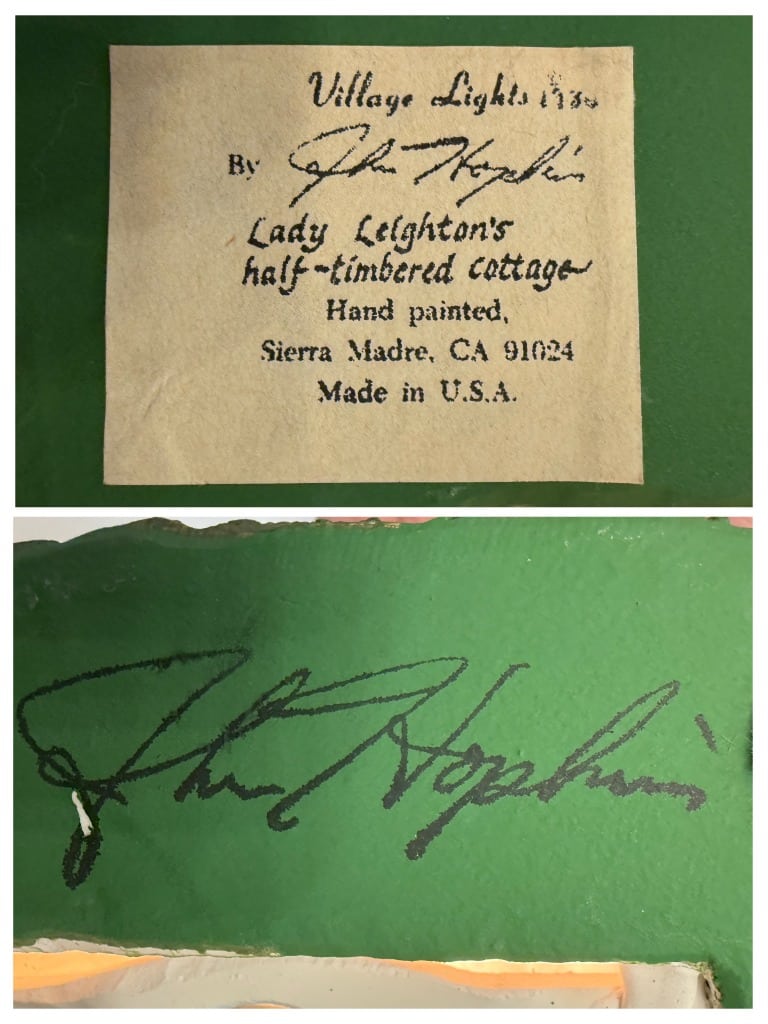 Village Lights
By John Hopkins
Lady Leighton's
half-timbered cottage
Hand painted,
Sierra Madre, CA 91024
Made in U.S.A.
John Hopkins